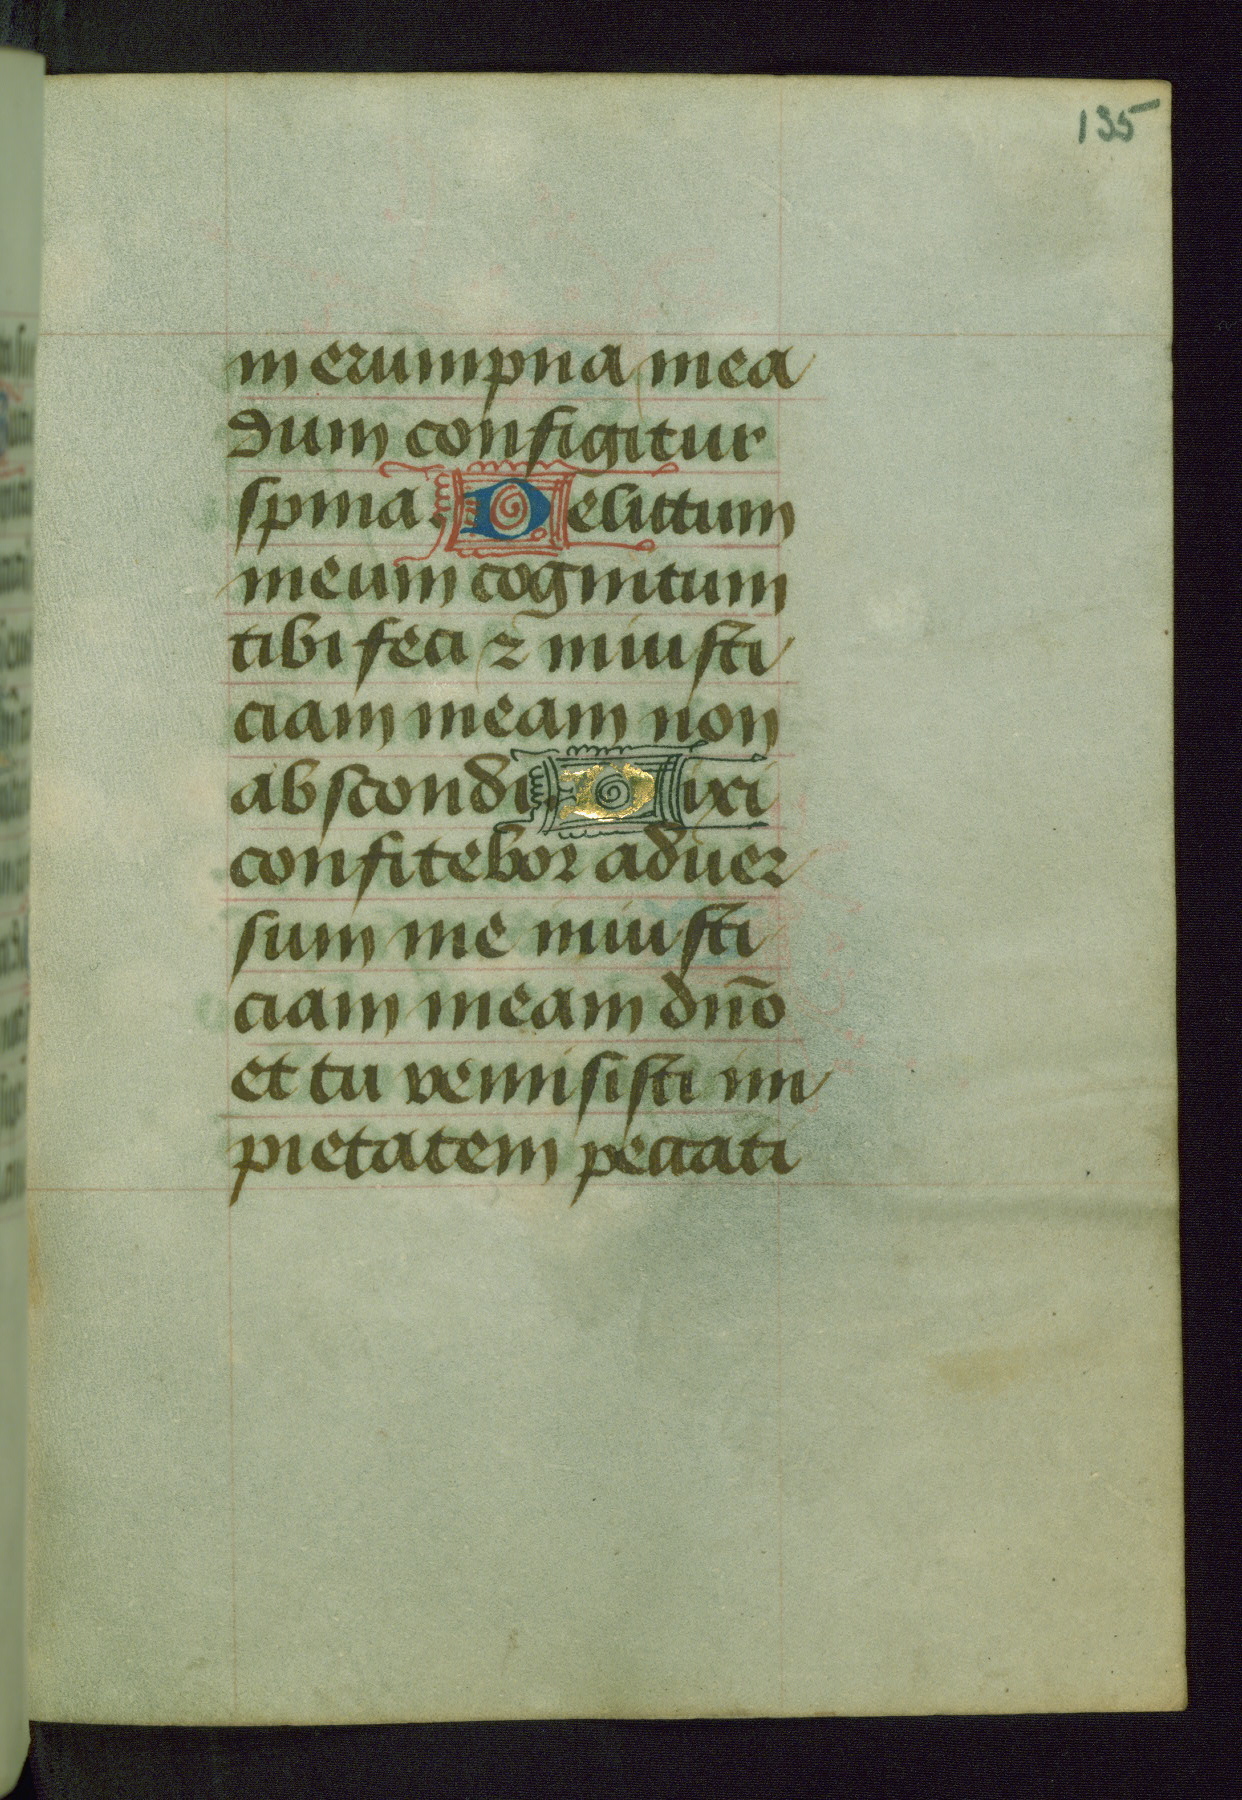 135
in erumpna mea
dum configitur
spina. Delictum
meum cognitum
tibi feci ⁊ iniusti
ciam meam non
abscondi. Dixi
confitebor aduer
sum me iniusti
ciam meam dn̄o
et tu remisisti im
pietatem peccati